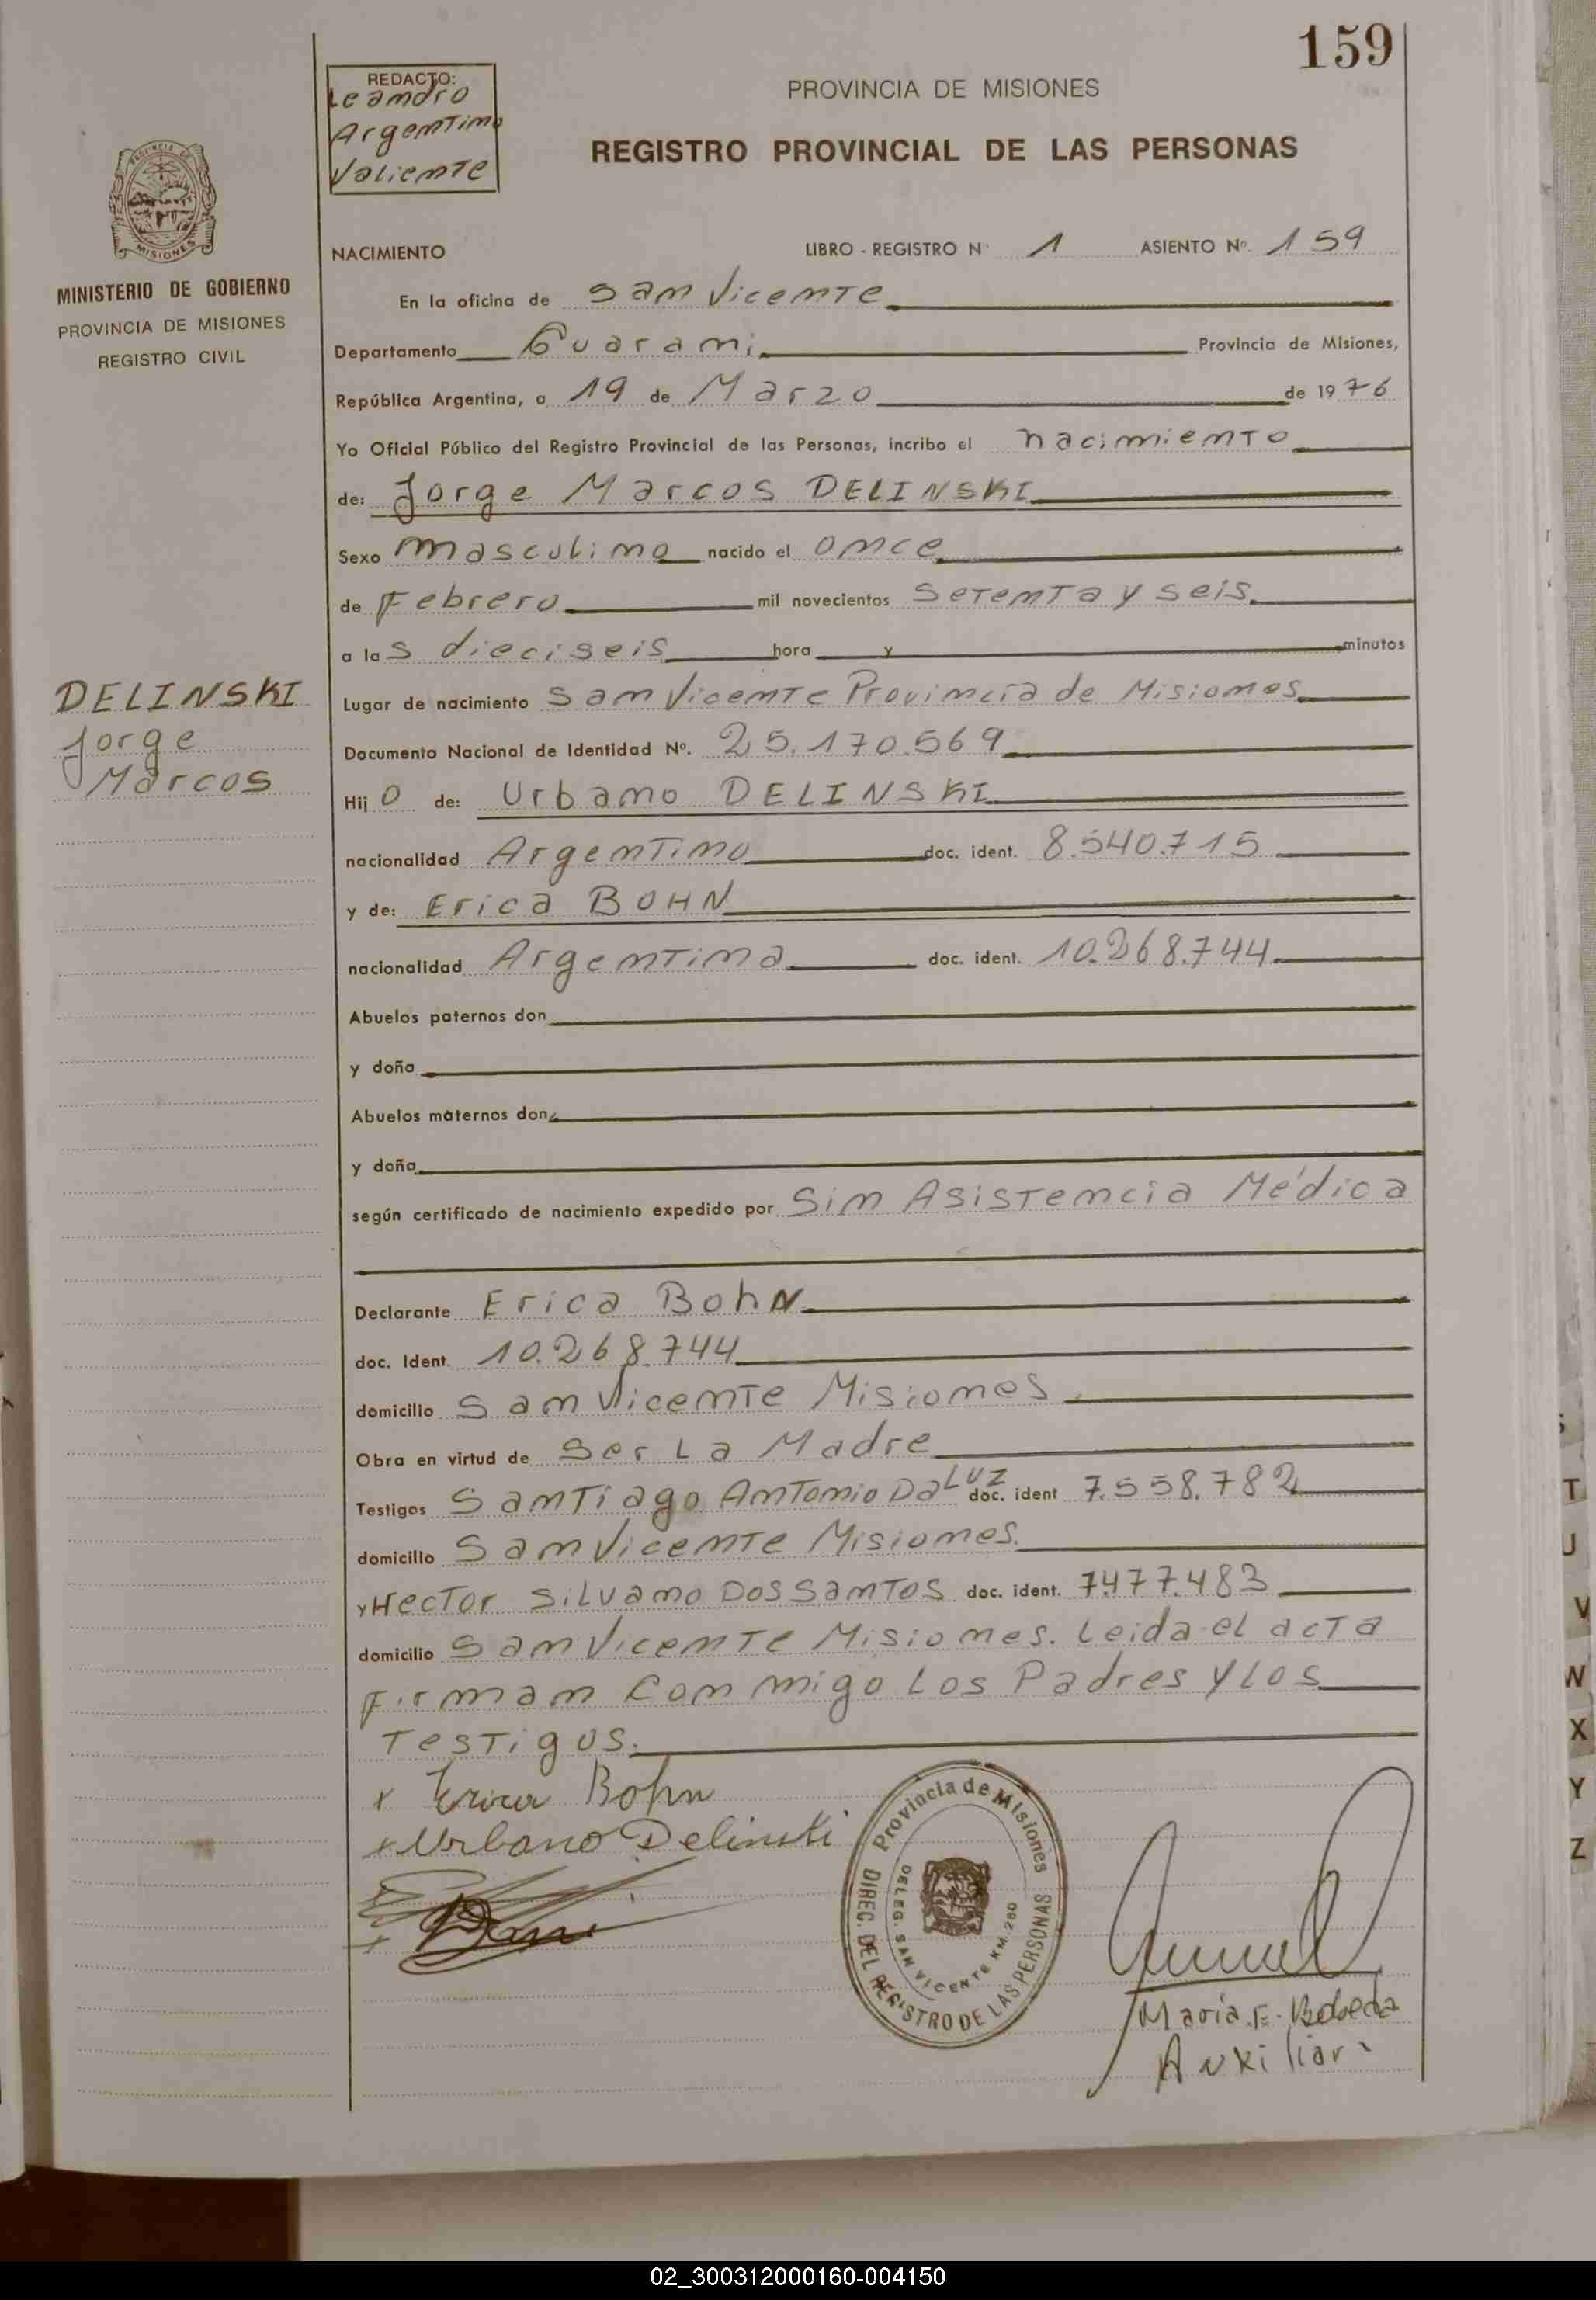 159
REDACTO:
Leandro
Argentino
Valiente
PROVINCIA DE MISIONES
REGISTRO PROVINCIAL DE LAS PERSONAS
PROVINCIA DE
MISIONES
MINISTERIO DE GOBIERNO
PROVINCIA DE MISIONES
REGISTRO CIVIL
NACIMIENTO LIBRO - REGISTRO Nº 1 ASIENTO Nº. 159
En la oficina de San Vicente
Departamento Guarani Provincia de Misiones,
República Argentina, a 19 de Marzo de 1976
Yo Oficial Público del Registro Provincial de las Personas, incribo el nacimiento
de: Jorge Marcos DELINSKI
Sexo masculino nacido el once
de Febrero mil novecientos setenta y seis
a las dieciseis hora y minutos
DELINSKI
Jorge
Marcos
Lugar de nacimiento San Vicente Provincia de Misiones
Documento Nacional de Identidad Nº. 25.170.569
Hijo de: Urbano DELINSKI
nacionalidad Argentino doc. ident. 8.540.715
y de: Erica BOHN
nacionalidad Argentina doc. ident. 10.268.744
Abuelos paternos don
y doña
Abuelos maternos don
y doña
según certificado de nacimiento expedido por Sin Asistencia Médica
Declarante Erica BohN
doc. Ident. 10.268.744
domicilio San Vicente Misiones
Obra en virtud de Ser La Madre
Testigos Santiago Antonio Da Luz doc. ident 7.558.782
domicilio San Vicente Misiones.
y Hector Silvano Dos Santos doc. ident. 7.477.483
domicilio San Vicente Misiones. Leida el acta
Firman conmigo Los Padres y Los
Testigos.
x Erica Bohn
x Urbano Delinski
Provincia de Misiones
DIREC. DEL REGISTRO DE LAS PERSONAS
DELEG. SAN VICENTE KM. 280
Maria E.
Auxiliar
T
U
V
W
X
Y
Z
02_300312000160-004150